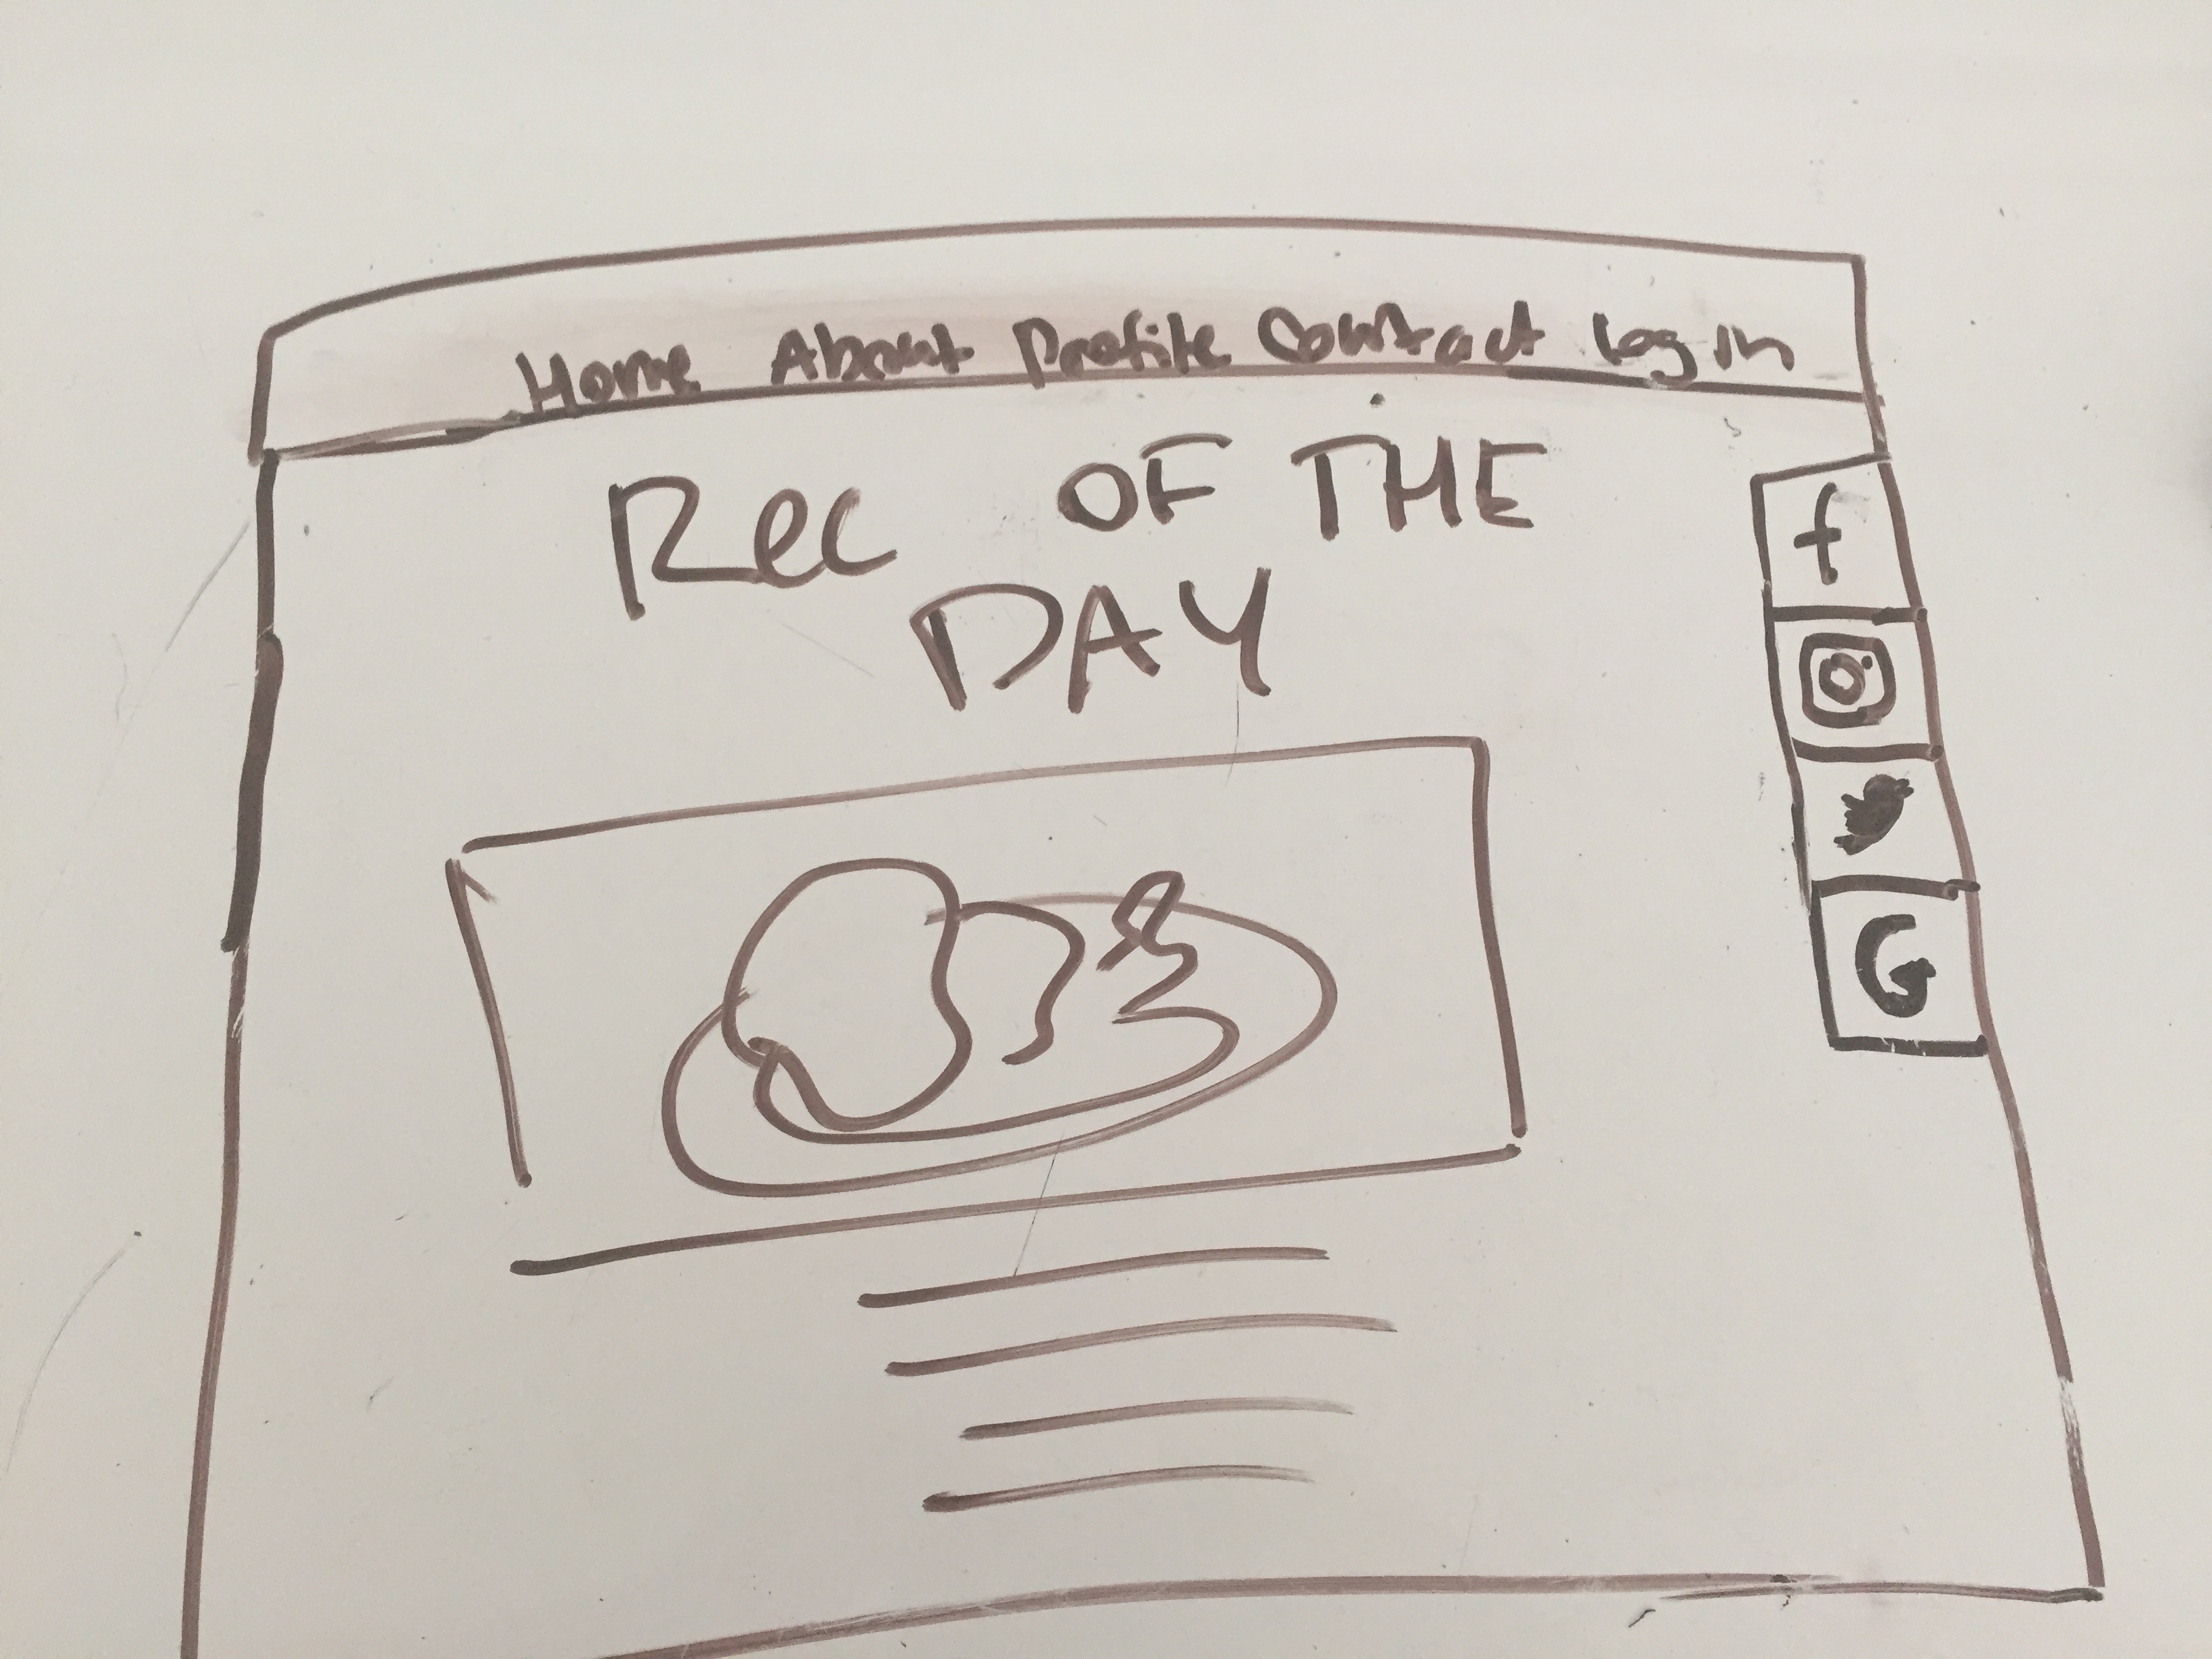 Home About Profile Contact Log in
Rec OF THE
DAY
f
G